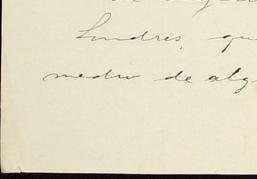 Londres, qu
medio de alg